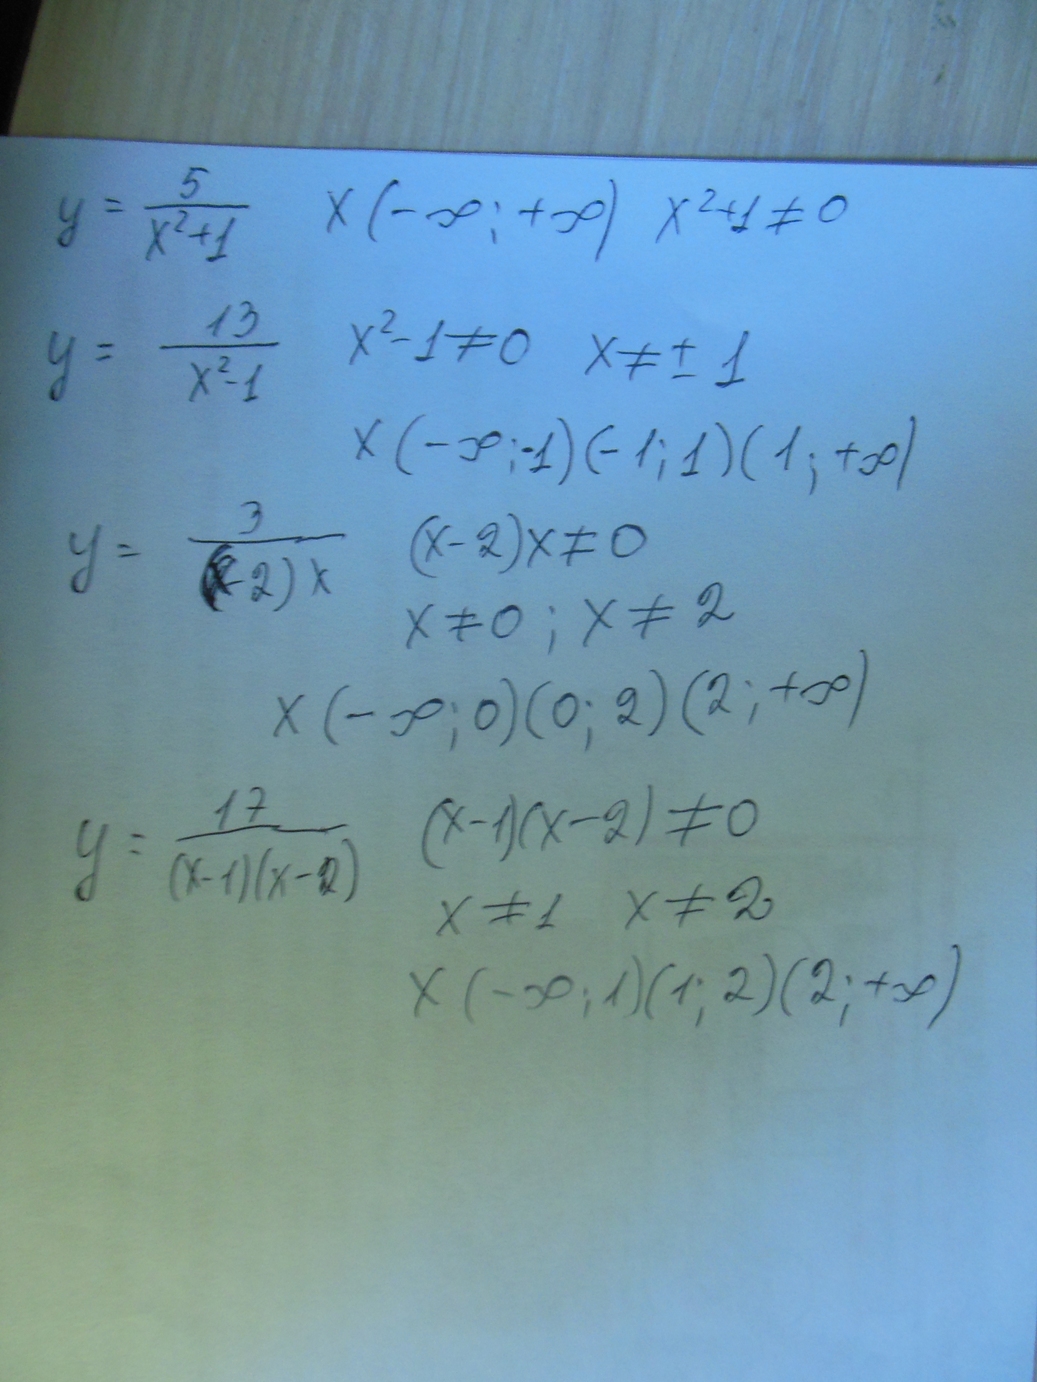 y = 5/(x²+1) x(-∞; +∞) x²+1≠0
y = 13/(x²-1) x²-1≠0 x≠±1
x(-∞;-1)(-1;1)(1;+∞)
y = 3/((x-2)x) (x-2)x≠0
x≠0; x≠2
x(-∞;0)(0;2)(2;+∞)
y = 17/((x-1)(x-2)) (x-1)(x-2)≠0
x≠1 x≠2
x(-∞;1)(1;2)(2;+∞)